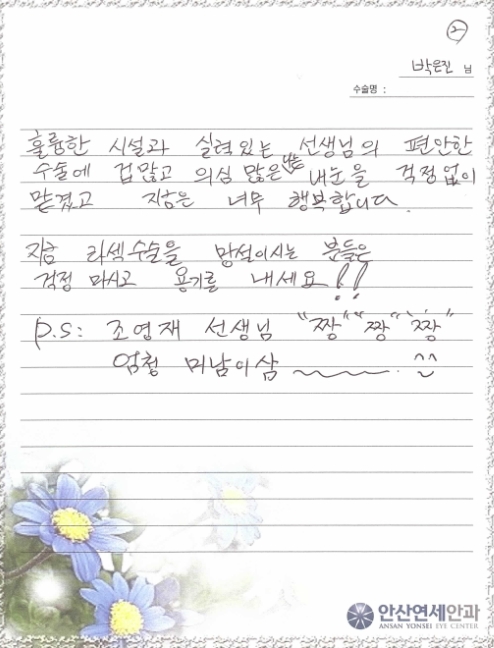 2
박은진 님
수술명 :
훌륭한 시설과 실력있는 선생님의 편안한
수술에 겁많고 의심 많은 나는 내눈을 걱정없이
맡겼고 지금은 너무 행복합니다.
지금 라섹수술을 망설이시는 분들은
걱정 마시고 용기를 내세요!!
P.S: 조영재 선생님 "짱" "짱" "짱"
엄청 미남이삼 ~~~ ^^
안산연세안과
ANSAN YONSEI EYE CENTER